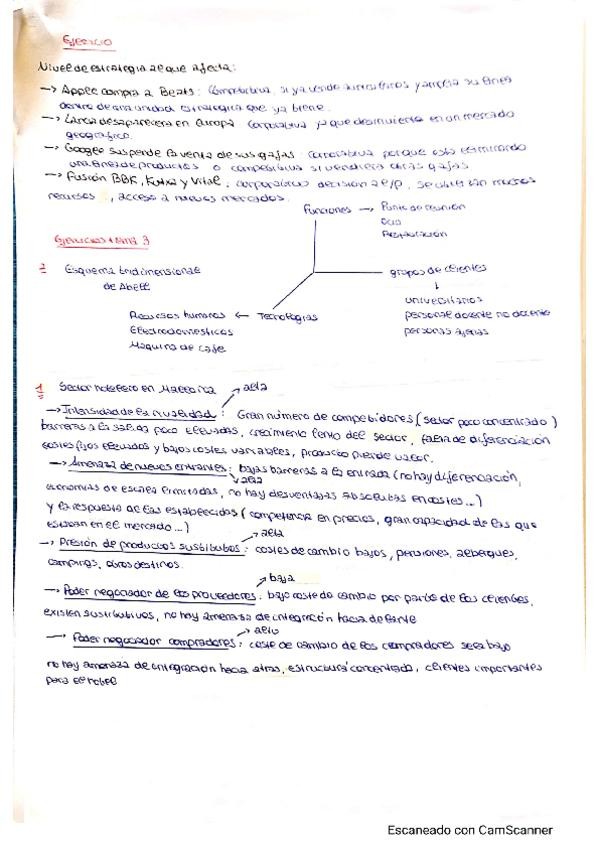 Ejercicio
Nivel de estrategia al que afecta:
→ Apple compra a Beats: Competitiva, si ya vende auriculares y amplia su línea
dentro de una unidad estratégica que ya tiene.
→ Lanza desaparecera en Europa: corporativa ya que desinvierte en un mercado
geográfico.
→ Google suspende la venta de sus gafas: corporativa porque está eliminando
una línea de productos o competitiva si vendiera otras gafas
→ Fusión BBK, Kutxa y Vital: corporativa decisión a l/p, se utilizan muchos
recursos, acceso a nuevos mercados.
Funciones → Punto de reunión
Ocio
Restauración
Ejercicios tema 3
2 Esquema tridimensional
de Abell
grupos de clientes
↓
universitarios
personal docente no docente
personas ajenas
Recursos humanos ← Tecnologías
Electrodomésticos
Maquina de cafe
1 Sector hotelero en Mallorca
→ Intensidad de la rivalidad: → alta Gran número de competidores (sector poco concentrado)
barreras a la salida poco elevadas, crecimiento lento del sector, falta de diferenciación
costes fijos elevados y bajos costes variables, producto pierde valor.
→ Amenaza de nuevos entrantes: → alta bajas barreras a la entrada (no hay diferenciación,
economías de escala limitadas, no hay desventajas absolutas en costes...)
y la respuesta de las establecidas (competencia en precios, gran capacidad de las que
estaban en el mercado...)
→ Presión de productos sustitutos: → alta costes de cambio bajos, pensiones, albergues,
campings, otros destinos.
→ Poder negociador de los proveedores: → baja bajo coste de cambio por parte de los clientes,
existen sustitutivos, no hay amenaza de integración hacia delante
→ Poder negociador compradores: → alto coste de cambio de los compradores sea bajo
no hay amenaza de integración hacia atras, estructura concentrada, clientes importantes
para el hotel
Escaneado con CamScanner